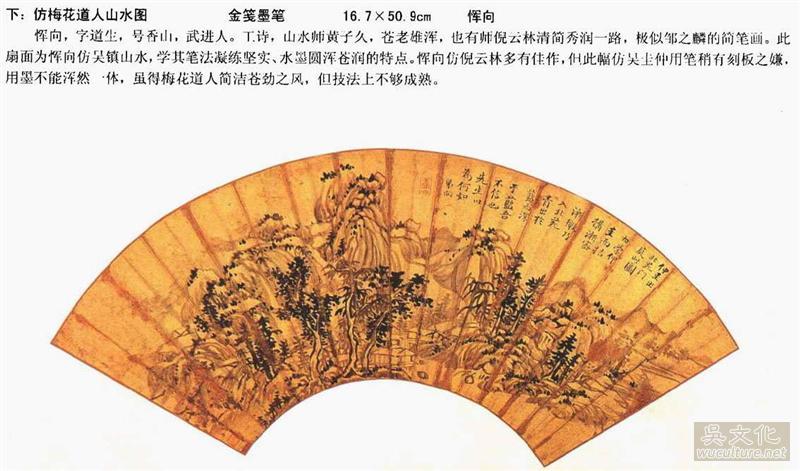 下：仿梅花道人山水图 金笺墨笔 16.7×50.9cm 恽向
恽向，字道生，号香山，武进人。工诗，山水师黄子久，苍老雄浑，也有师倪云林清简秀润一路，极似邹之麟的简笔画。此
扇面为恽向仿吴镇山水，学其笔法凝练坚实、水墨圆浑苍润的特点。恽向仿倪云林多有佳作，但此幅仿吴圭仲用笔稍有刻板之嫌，
用墨不能浑然一体，虽得梅花道人简洁苍劲之风，但技法上不够成熟。
仲圭出
北苑门
入北苑
青出於
于蓝吾
不信也
先生以
為何如
吳文化
wuculture.net